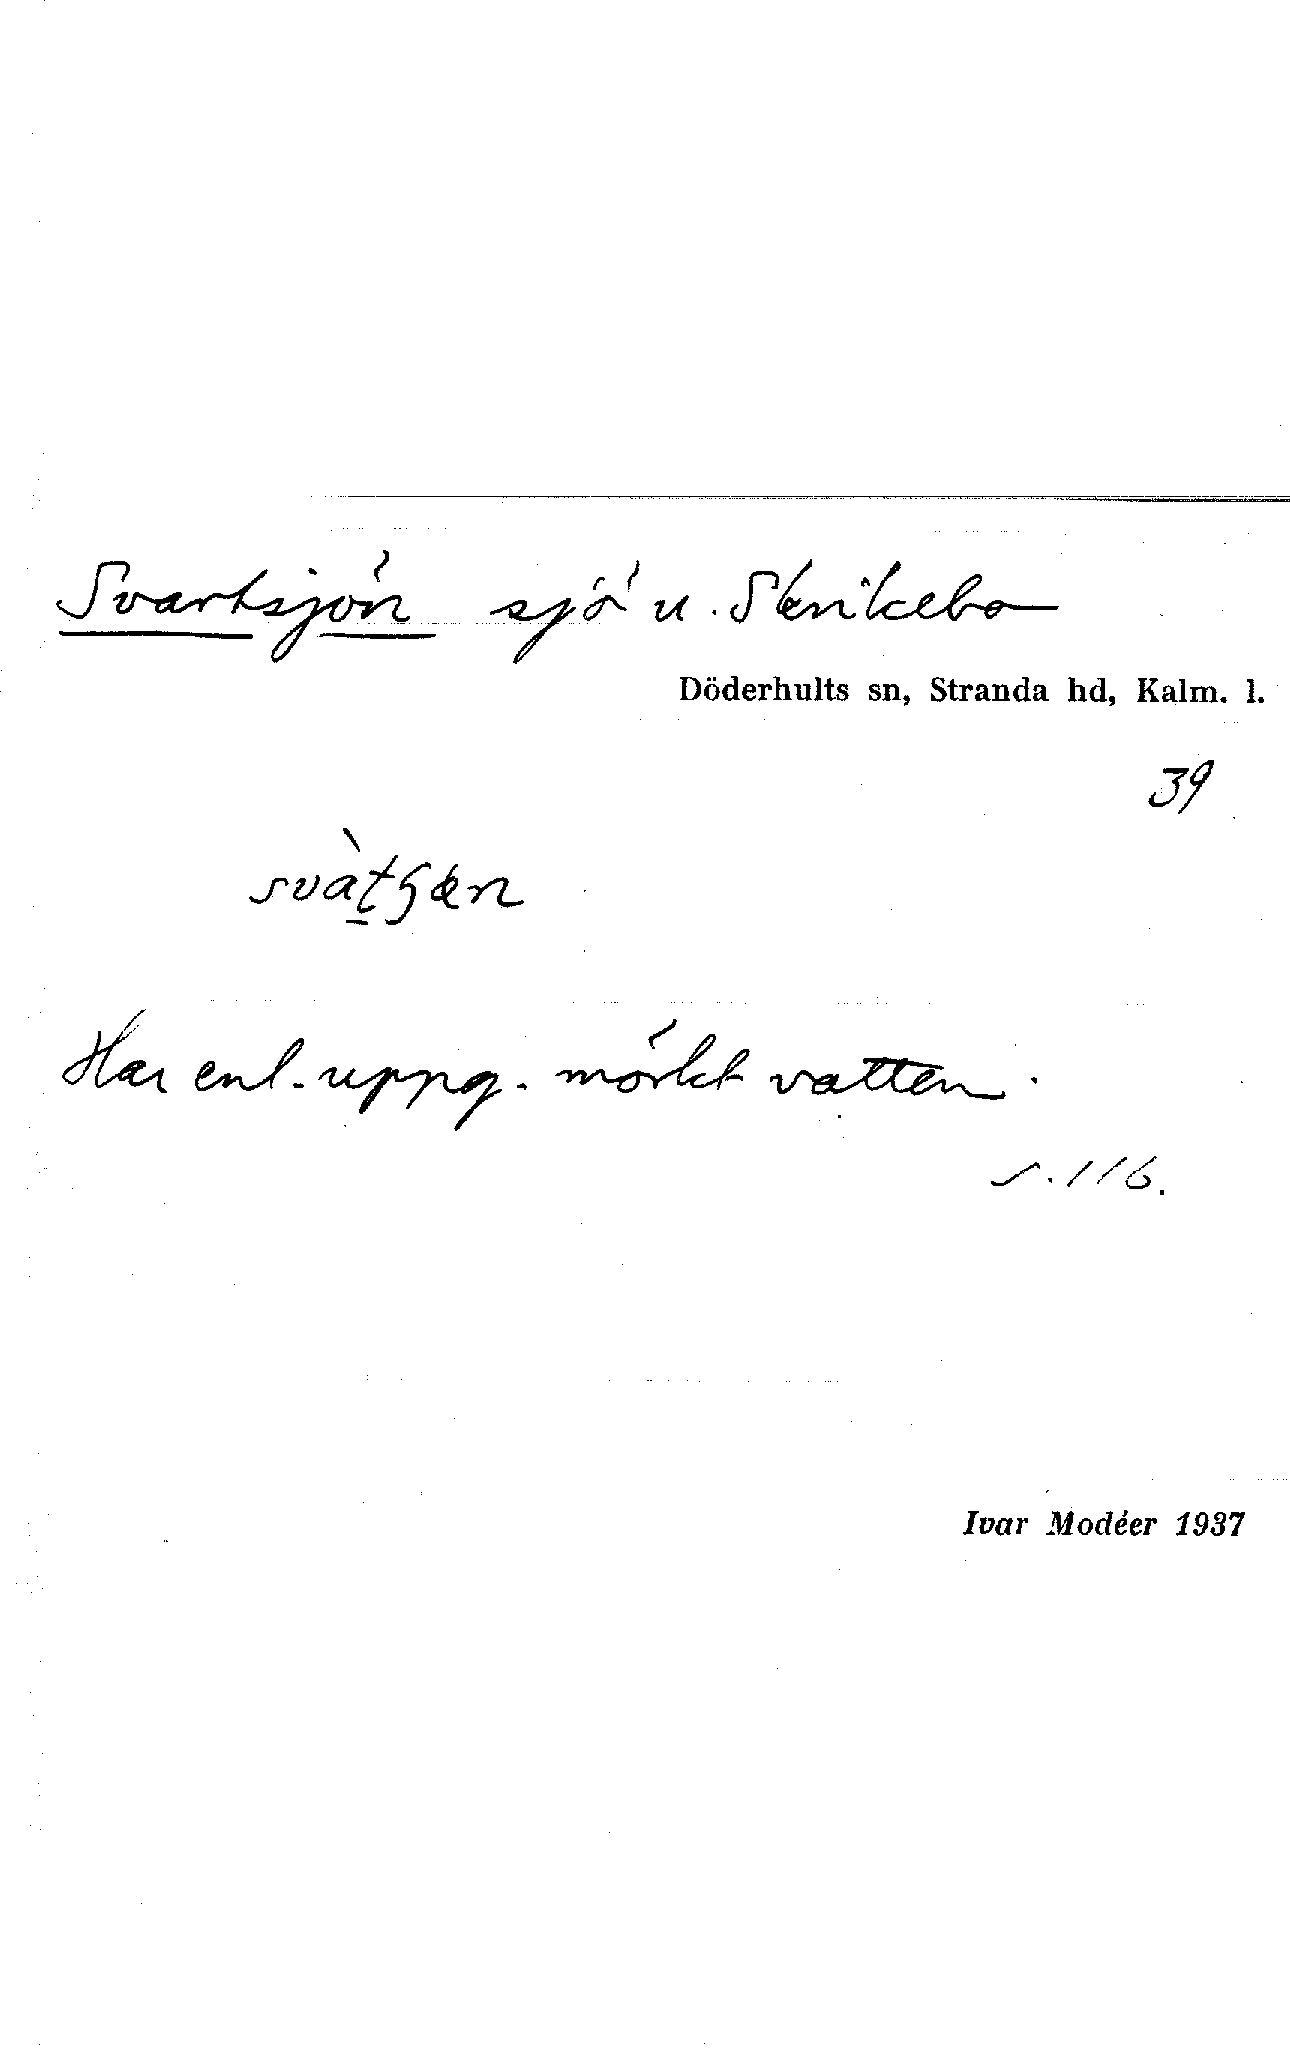 Svartsjön sjö u. Skrikebo
Döderhults sn, Stranda hd, Kalm. l.
39
Har enl. uppg. mörkt vatten.
s. 116.
Ivar Modéer 1937